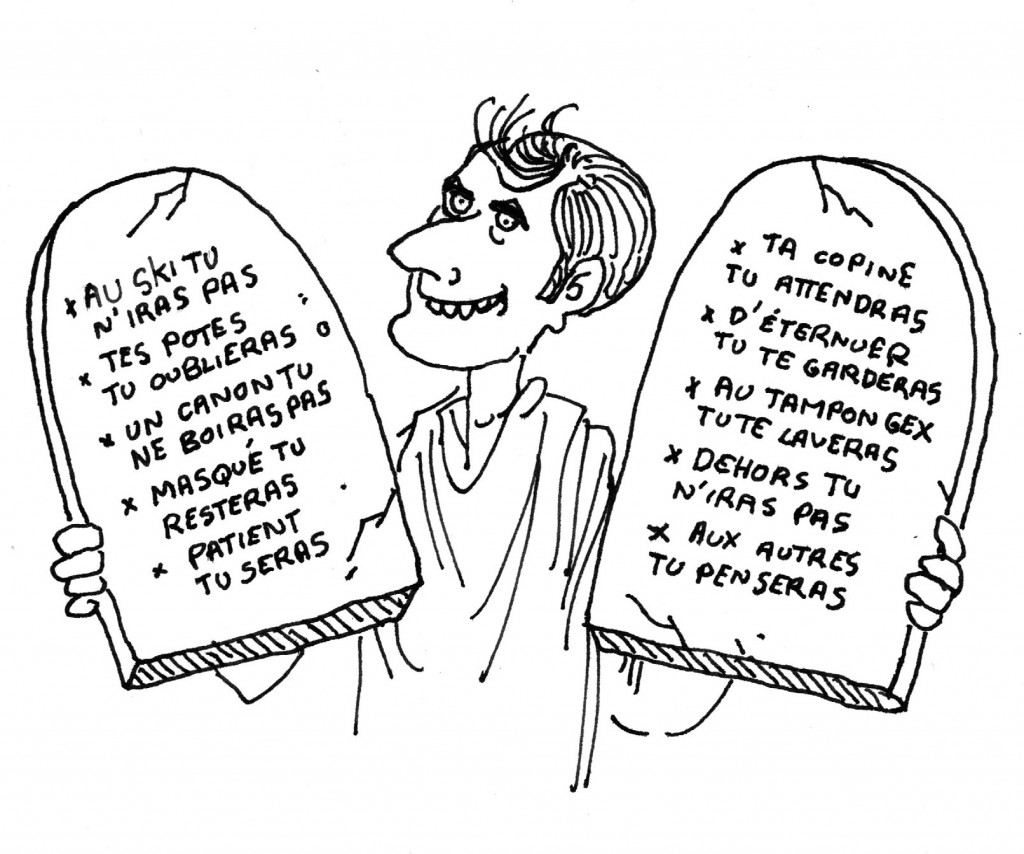 * AU SKI TU
N'IRAS PAS
* TES POTES
TU OUBLIERAS
* UN CANON TU
NE BOIRAS PAS
* MASQUÉ TU
RESTERAS
* PATIENT
TU SERAS
* TA COPINE
TU ATTENDRAS
* D'ÉTERNUER
TU TE GARDERAS
* AU TAMPON GEX
TU TE LAVERAS
* DEHORS TU
N'IRAS PAS
* AUX AUTRES
TU PENSERAS